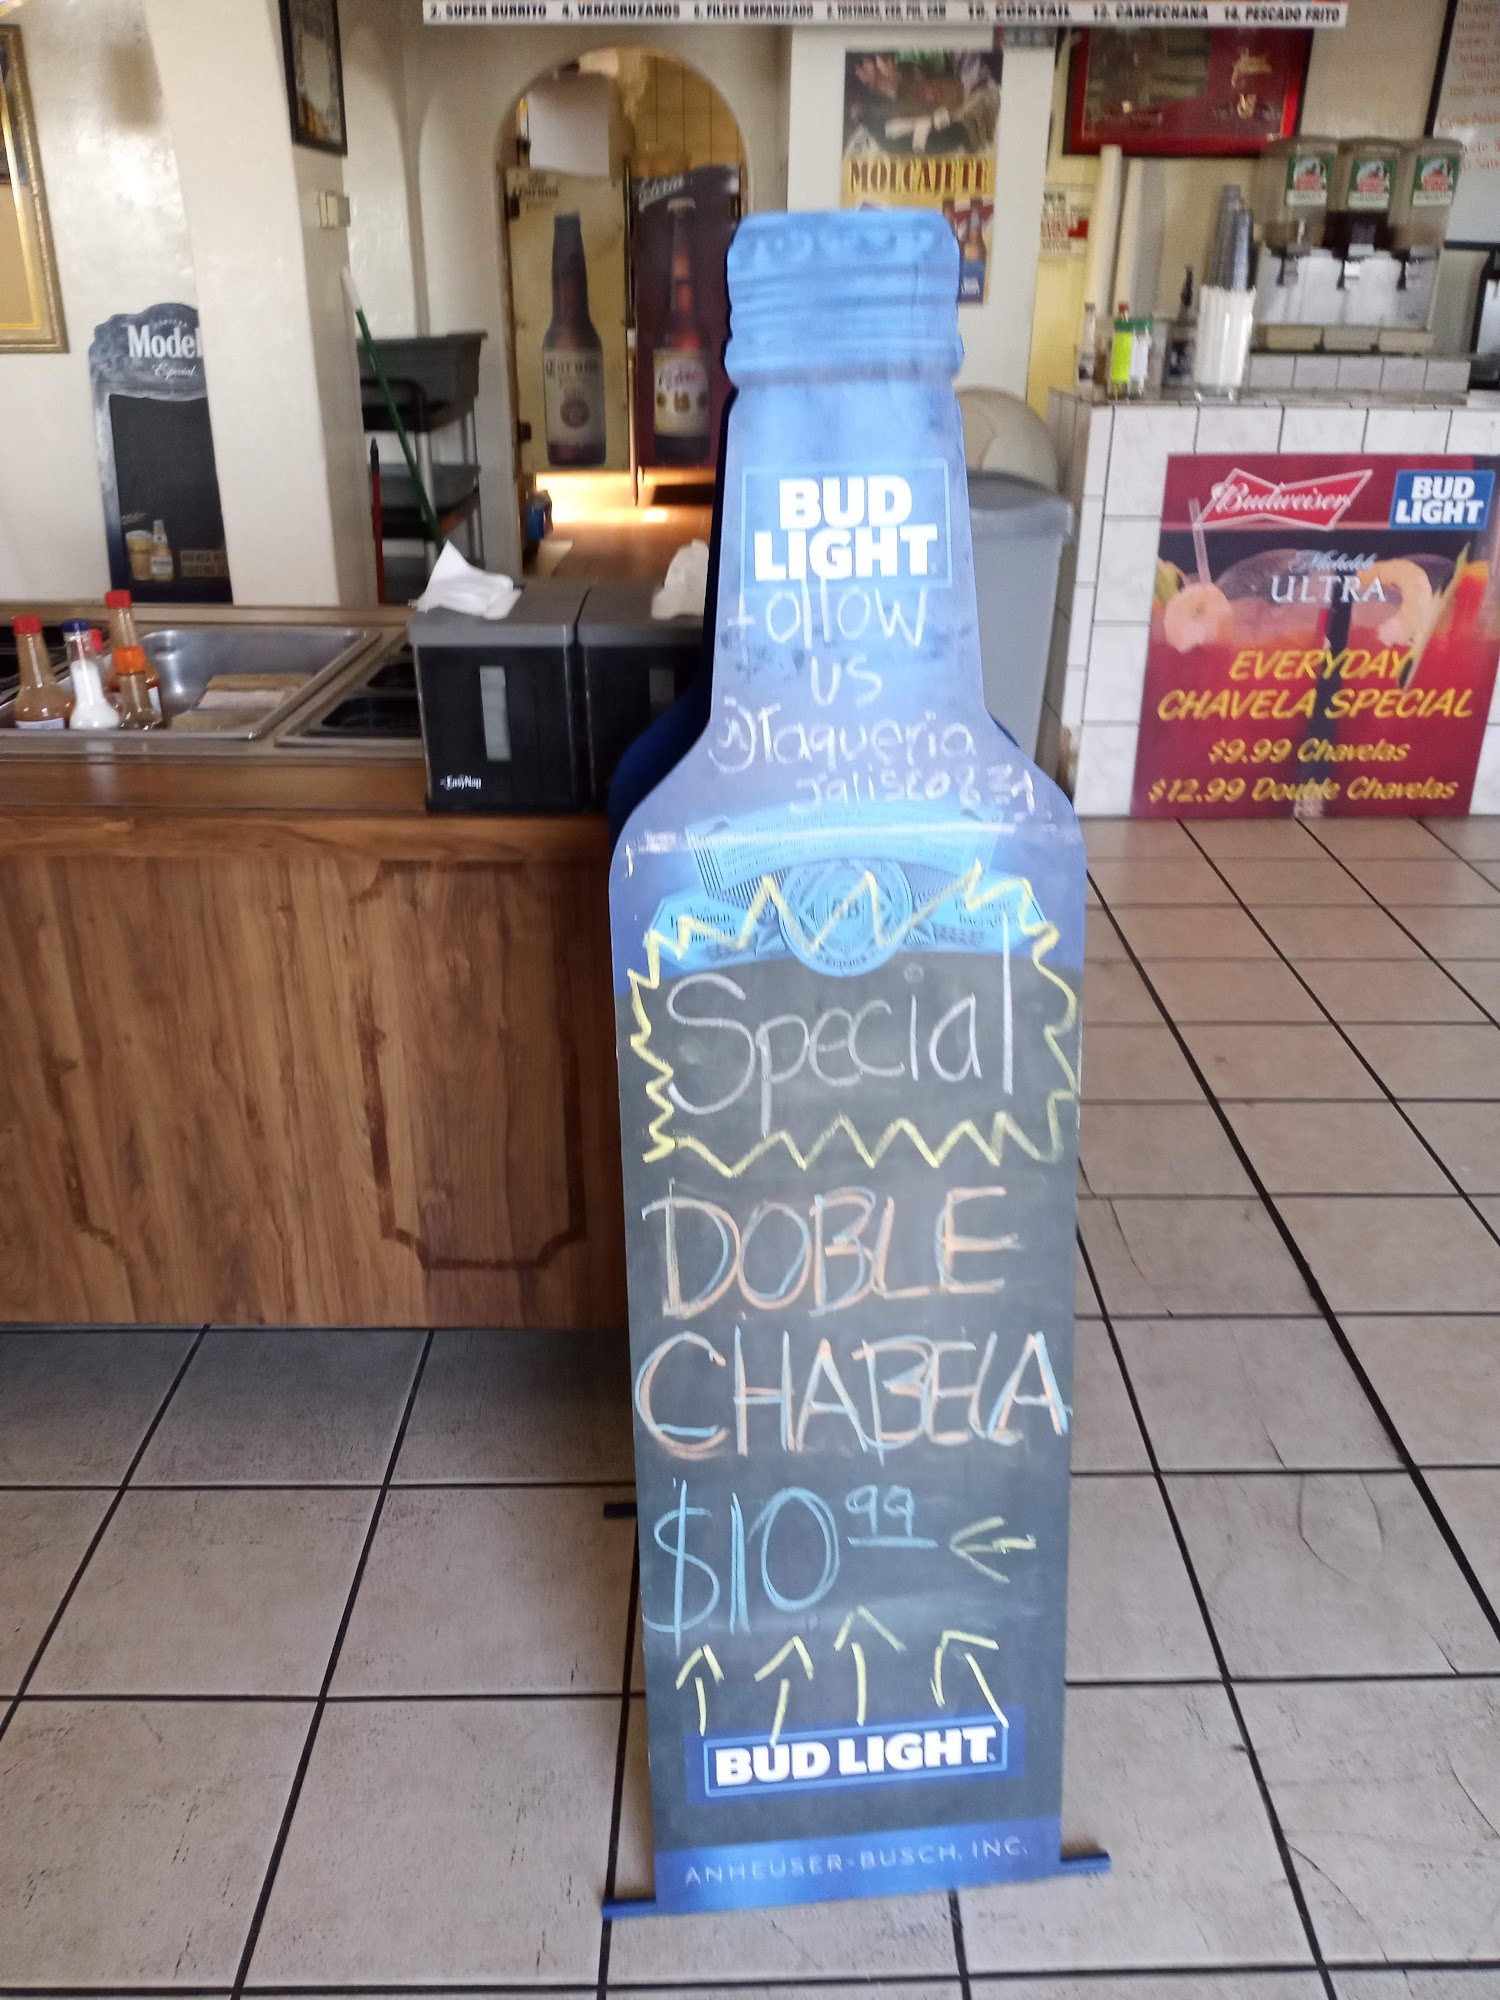 2. SUPER BURRITO 4. VERACRUZANOS 6. FILETE EMPANIZADO 10. COCKTAIL 12. CAMPECHANA 14. PESCADO FRITO
MOLCAJETE
Model
Especial
BUD
LIGHT
Follow
us
@Taqueria
Jalisco
Special
DOBLE
CHABELA
$10.99
BUD LIGHT
ANHEUSER-BUSCH, INC.
EasyNap
Budweiser
BUD
LIGHT
Michelob
ULTRA
EVERYDAY
CHAVELA SPECIAL
$9.99 Chavelas
$12.99 Double Chavelas